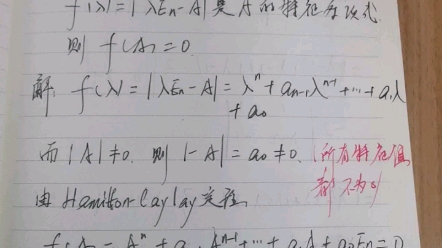 f(λ)=|λEn-A|是A的特征多项式
则 f(A)=0.
解 f(λ)=|λEn-A|=λ^n+a_{n-1}λ^{n-1}+…+a_1λ
+a_0
而|A|≠0. 则|-A|=a_0≠0. 所有特征值
都不为0
由Hamilton-Caylay定理
f(A)=A^n+a A^{n-1}+…+a_1A+a_0En=0